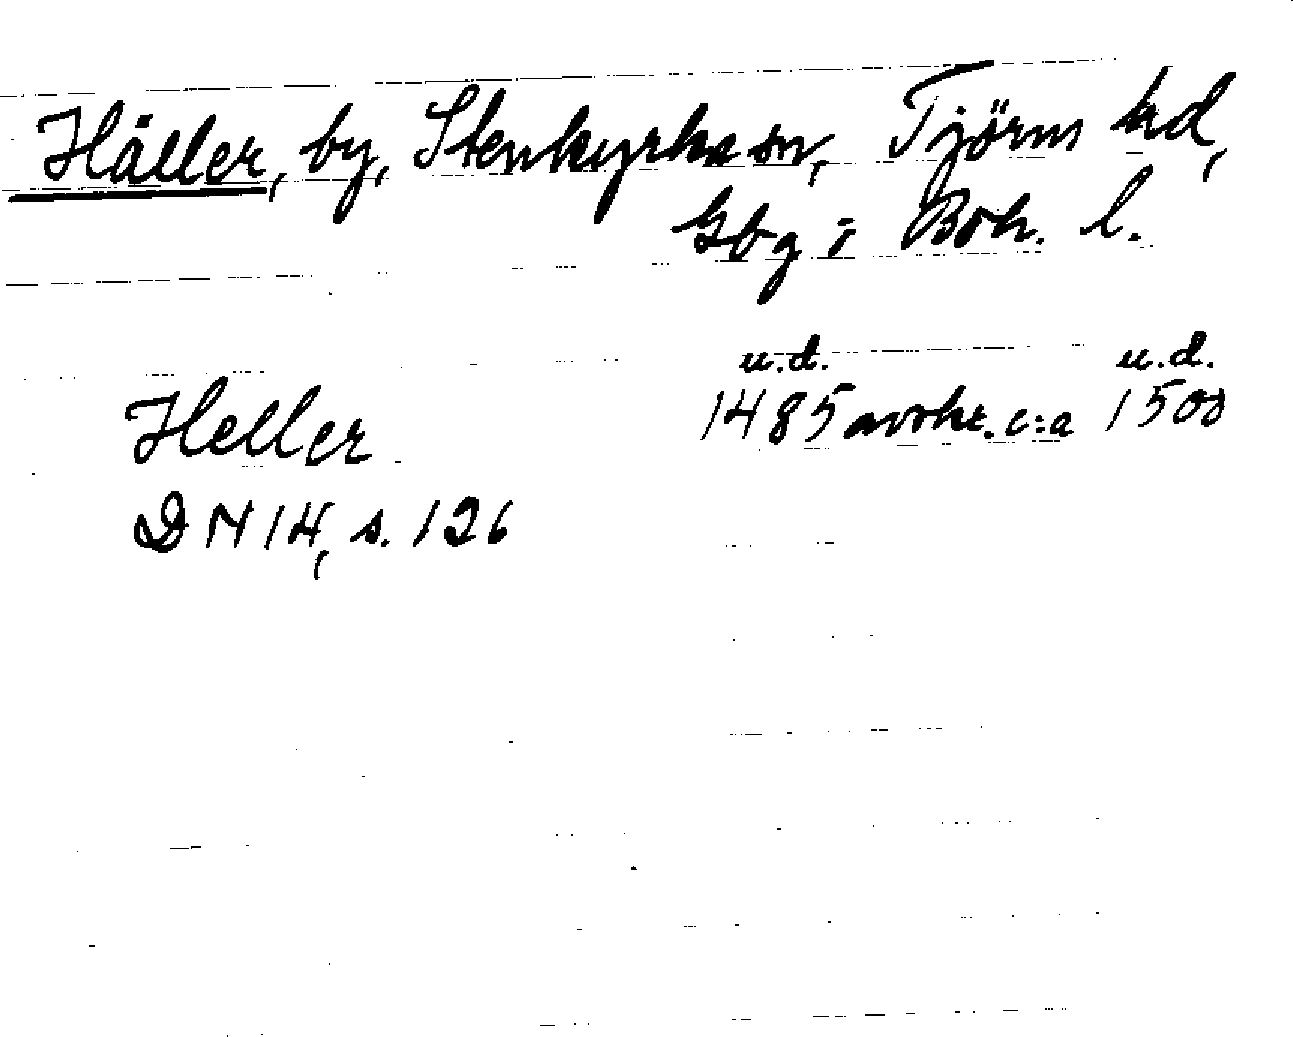 Häller, by, Stenkyrka sn, Tjörns hd,
Gbg i Boh. l.
u.d. u.d.
Heller 1485 avskr. c:a 1500
DN 14, s. 126